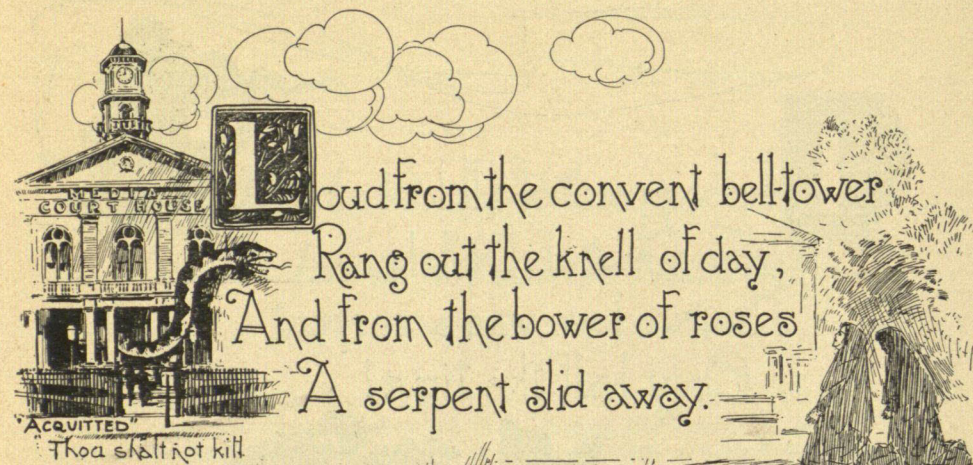 MEDIA
COURT HOUSE
Loud from the convent bell-tower
Rang out the knell of day,
And from the bower of roses
A serpent slid away.
"ACQUITTED"
"Thou shalt not kill